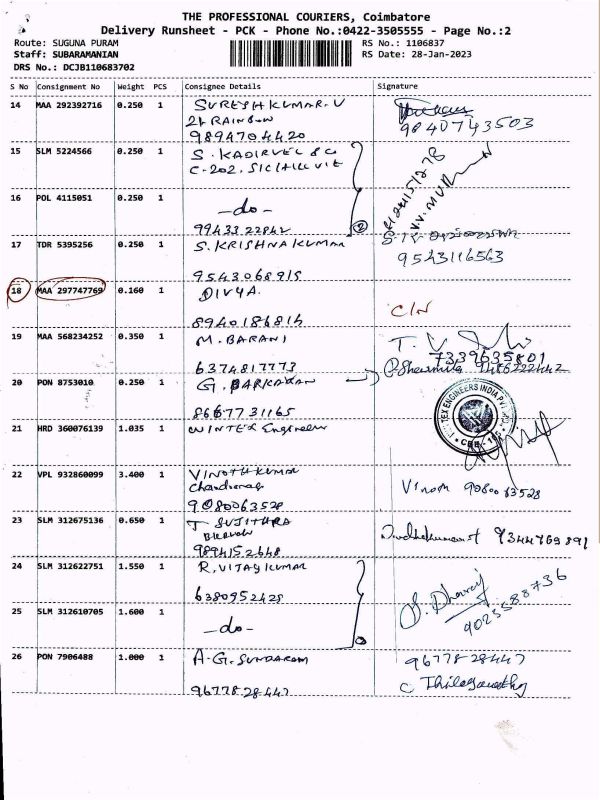 THE PROFESSIONAL COURIERS, Coimbatore
Delivery Runsheet - PCK - Phone No.:0422-3505555 - Page No.:2
Route: SUGUNA PURAM
RS No.: 1106837
Staff: SUBARAMANIAN
RS Date: 28-Jan-2023
DRS No.: DCJB110683702
S No Consignment No Weight PCS Consignee Details Signature
14 MAA 292392716 0.250 1 SURESH KUMAR. V
21 RAINBOW
9894704420
9840743503
15 SLM 5224566 0.250 1 S. KADIRVEL & CO
C-202,
16 POL 4115051 0.250 1
-do-
9943322842
2
17 TDR 5395256 0.250 1 S. KRISHNAKUMAR
9543068915
9543116563
18 MAA 297747769 0.160 1 DIVYA.
8940186814
C/N
19 MAA 568234252 0.350 1 M. BARANI
6374817773
7339635801
20 PON 8753010 0.250 1 G.
8667731165
21 HRD 360076139 1.035 1 WINTEX Engineers
TEX ENGINEERS INDIA PVT
22 VPL 932860099 3.400 1 VINOTHKUMAR
9080063528
Vinoth 9080063528
23 SLM 312675136 0.650 1 T SUJITHRA
9894152648
9344769891
24 SLM 312622751 1.550 1 R. VIJAY KUMAR
6380952428
S. Dharaj
9023588736
25 SLM 312610705 1.600 1
-do-
26 PON 7906488 1.000 1 A.G. SUNDARAM
96778 28447
96778-28447